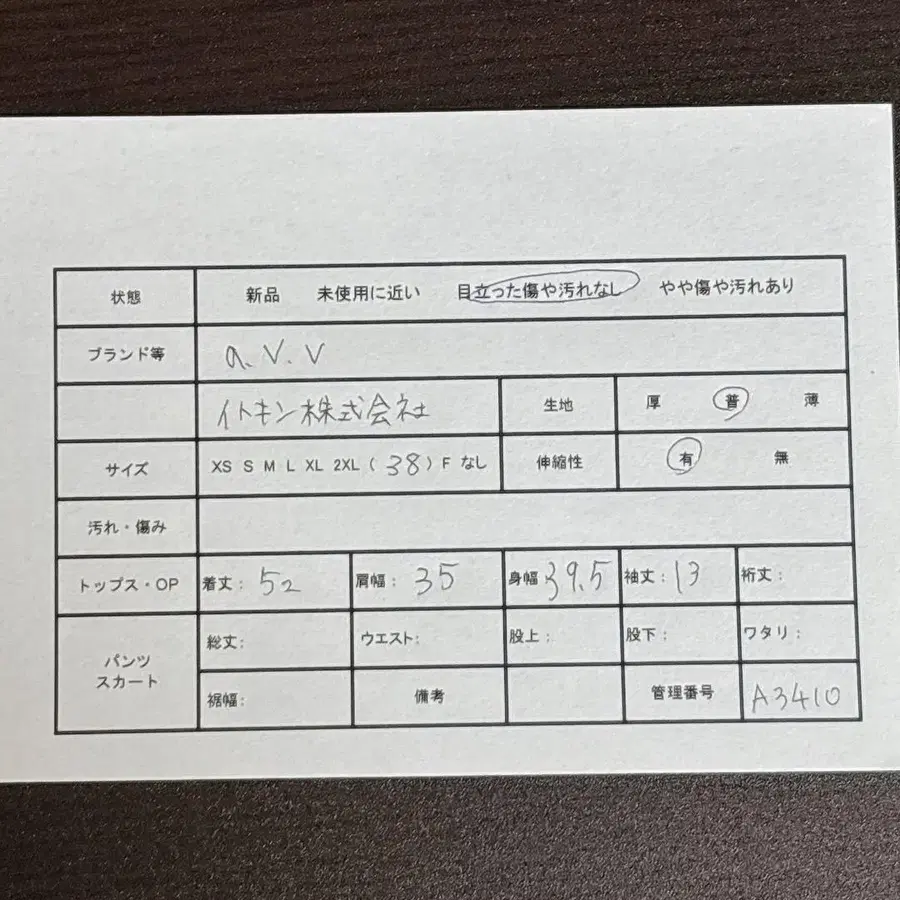 状態 新品 未使用に近い 目立った傷や汚れなし やや傷や汚れあり
ブランド等 a.v.v
イトキン株式会社 生地 厚 普 薄
サイズ XS S M L XL 2XL (38) F なし 伸縮性 有 無
汚れ・傷み
トップス・OP 着丈: 52 肩幅: 35 身幅 39.5 袖丈: 13 裄丈:
パンツ スカート 総丈: ウエスト: 股上: 股下: ワタリ:
裾幅: 備考 管理番号 A3410